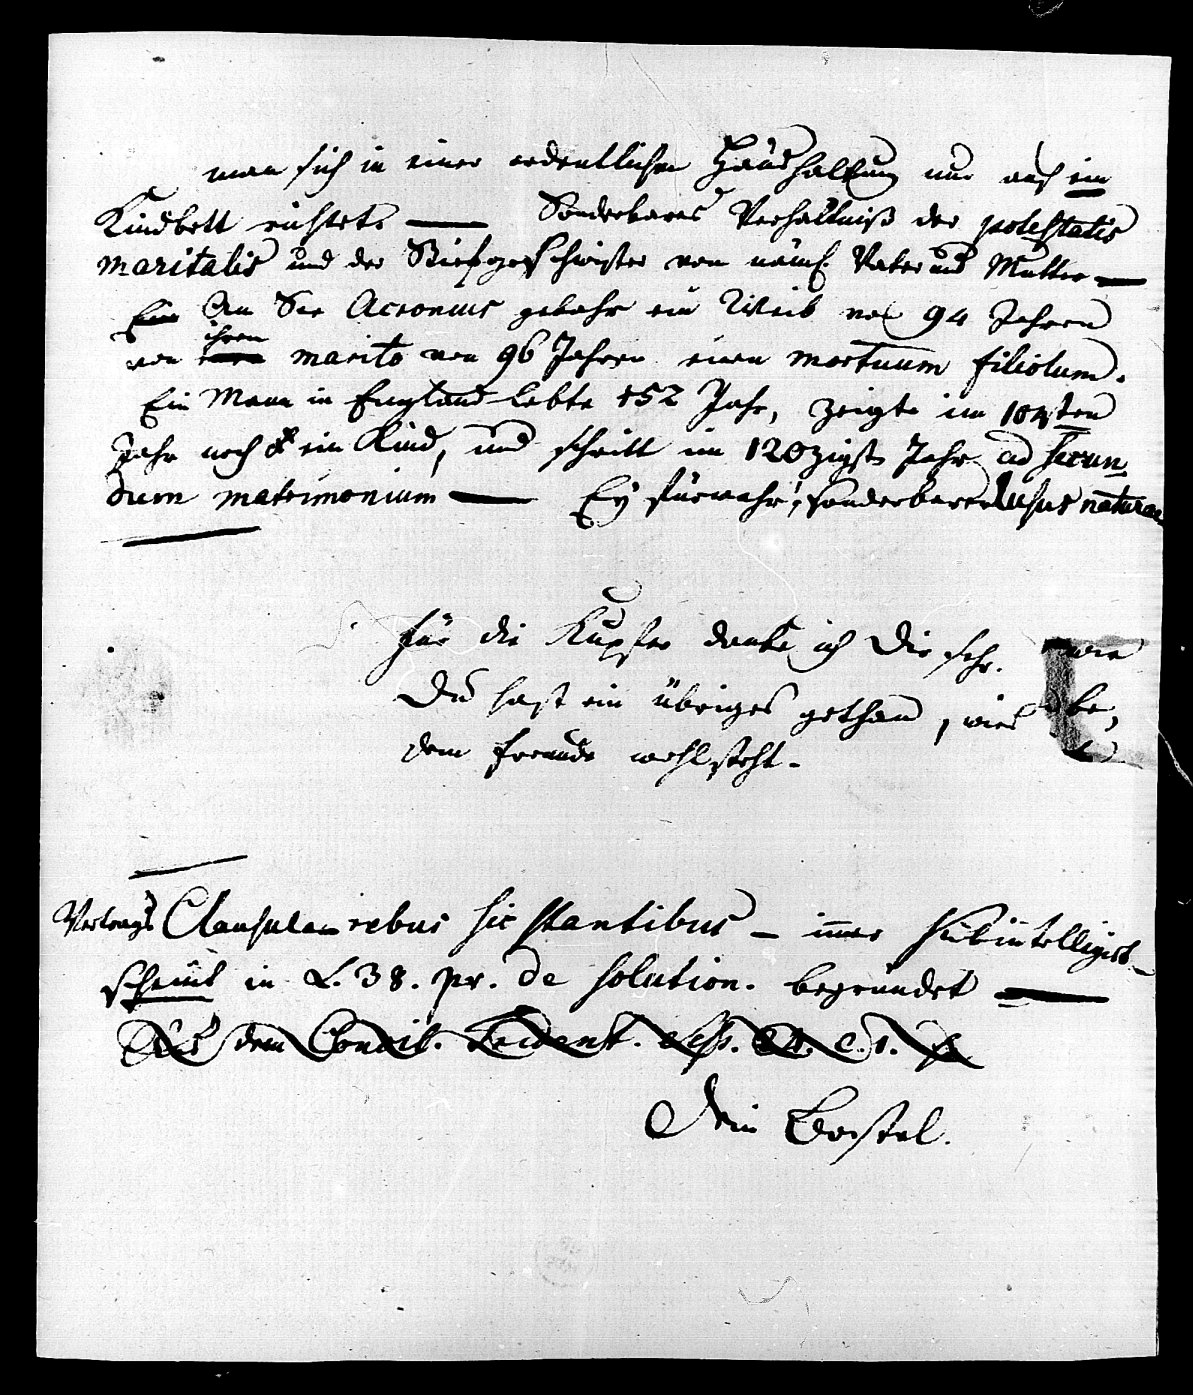 man sich in einer ordentlichen Haushaltung nur auf ein
Kindbett richtet. — Sonderbares Verhältniß der potestatis
maritalis und der Stiefgeschwister von näml. Vater und Mutter —
Ein Am See Acronius gebahr ein Weib von 94 Jahren
von ihrem marito von 96 Jahren einen mortuum filiolum.
Ein Mann in England lebte 152 Jahr, zeigte im 104ten
Jahr noch ein Kind, und schritt im 120zigst. Jahr ad secun-
dum matrimonium — Ey fürwahr! sonderbarer lusus naturae
für die Kupfer danke ich Dir sehr.
Du hast ein übriges gethan, wies
dem Freunde wohl steht.
Vertrags Clausulam rebus sic stantibus — immer subintelligirt
scheint in L. 38. pr. de solution. begründet —
Aus dem Concil. Trident. sess. 24. c. 1.
Dein Bostel.